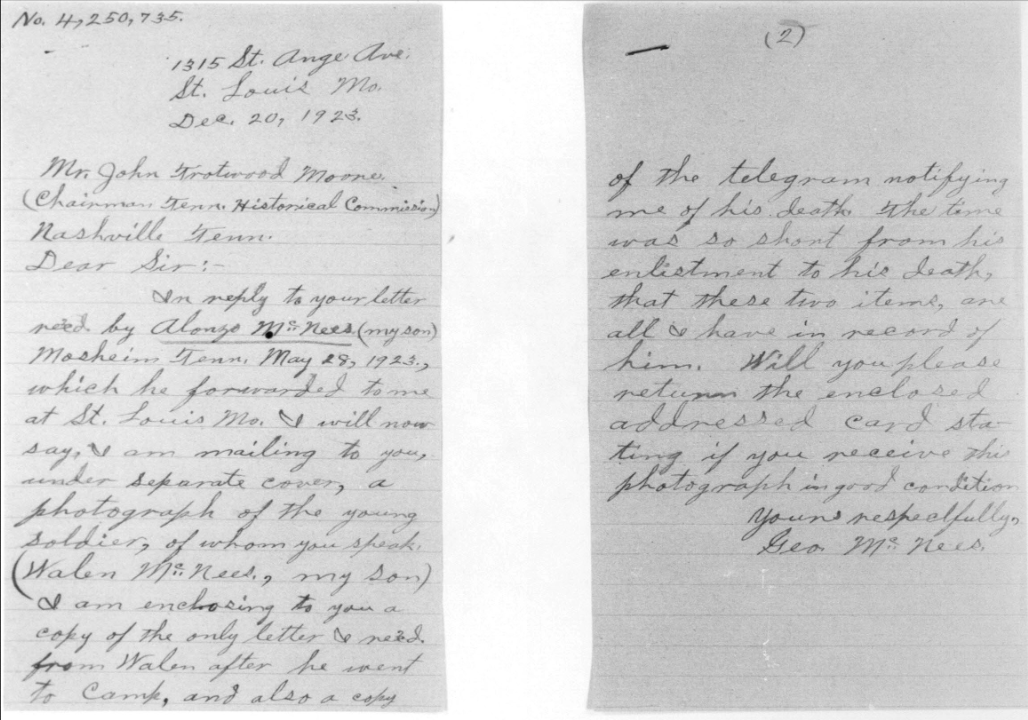 No. 4,250,735.
1315 St. Ange Ave.
St. Louis Mo.
Dec. 20, 1923.
Mr. John Trotwood Moore.
(Chairman Tenn. Historical Commission)
Nashville Tenn.
Dear Sir:-
In reply to your letter
rec'd by Alonzo Mc Nees (my son)
Mosheim Tenn. May 28, 1923.,
which he forwarded to me
at St. Louis Mo. I will now
say, I am mailing to you,
under separate cover, a
photograph of the young
soldier, of whom you speak.
(Walen Mc Nees., my son)
I am enclosing to you a
copy of the only letter I rec'd.
from Walen after he went
to Camp, and also a copy
(2)
of the telegram notifying
me of his death. The time
was so short from his
enlistment to his death,
that these two items, are
all I have in record of
him. Will you please
return the enclosed
addressed card sta-
ting if you receive this
photograph in good condition
Yours respectfully,
Geo. Mc Nees.